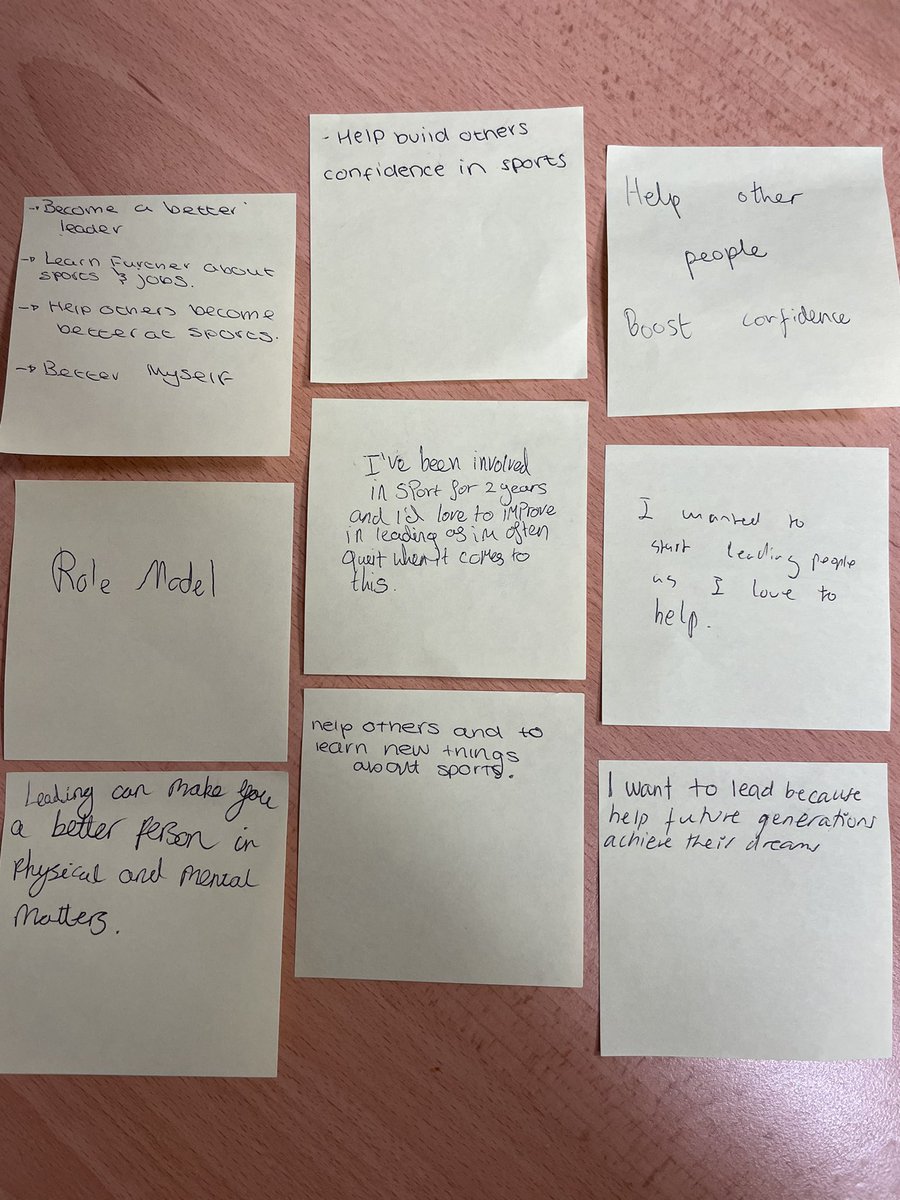 → Become a better
leader
→ Learn Further about
sports & jobs.
→ Help others become
better at sports.
→ Better Myself
- Help build others
confidence in sports
Help other
people
Boost confidence
Role Model
I've been involved
in sport for 2 years
and I'd love to improve
in leading as im often
quiet when it comes to
this.
I wanted to
start leading people
as I love to
help.
Leading can make you
a better person in
physical and mental
matters.
help others and to
learn new things
about sports.
I want to lead because
help future generations
achieve their dreams